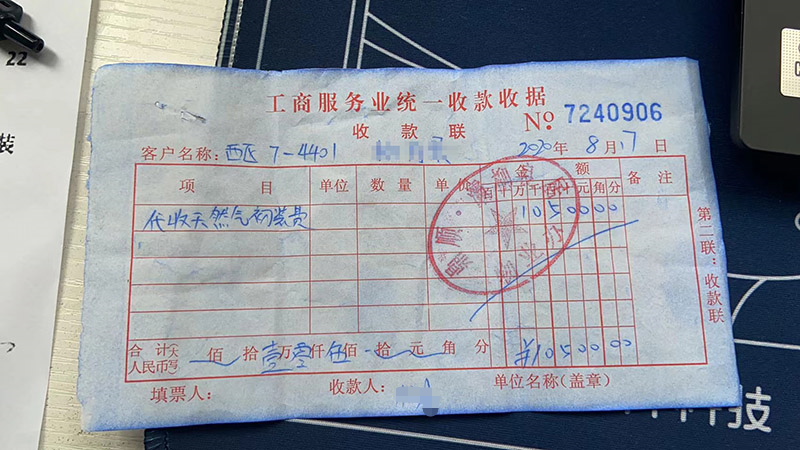 22
装
工商服务业统一收款收据
收款联
№ 7240906
客户名称：西区 7-4401
2020年 8月17日
项目 单位 数量 单价 金额 备注
百十万千百十元角分
代收天然气初装费 10500 00
合计（大写）人民币 佰 拾 壹万 零仟 伍佰 拾 元 角 分 ¥10500 00
填票人： 收款人： 单位名称（盖章）
第二联：收款联
科技